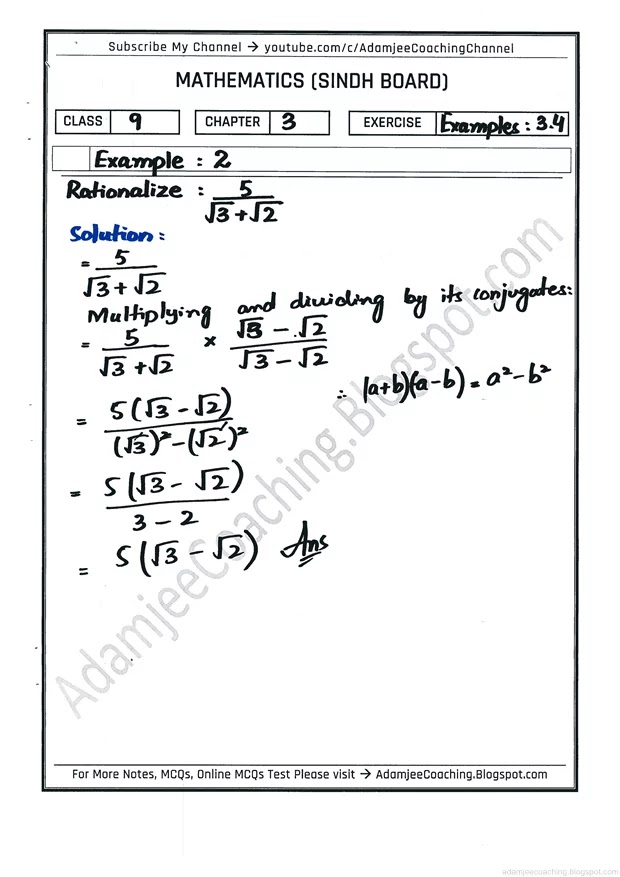 Subscribe My Channel → youtube.com/c/AdamjeeCoachingChannel
MATHEMATICS (SINDH BOARD)
CLASS 9 CHAPTER 3 EXERCISE Examples : 3.4
Example : 2
Rationalize : 5 / (√3 + √2)
Solution:
= 5 / (√3 + √2)
Multiplying and dividing by its conjugates:
= 5 / (√3 + √2) × (√3 - √2) / (√3 - √2)
∴ (a+b)(a-b) = a² - b²
= 5(√3 - √2) / ((√3)² - (√2)²)
= 5(√3 - √2) / (3 - 2)
= 5(√3 - √2) Ans
AdamjeeCoaching.Blogspot.com
For More Notes, MCQs, Online MCQs Test Please visit → AdamjeeCoaching.Blogspot.com
adamjeecoaching.blogspot.com